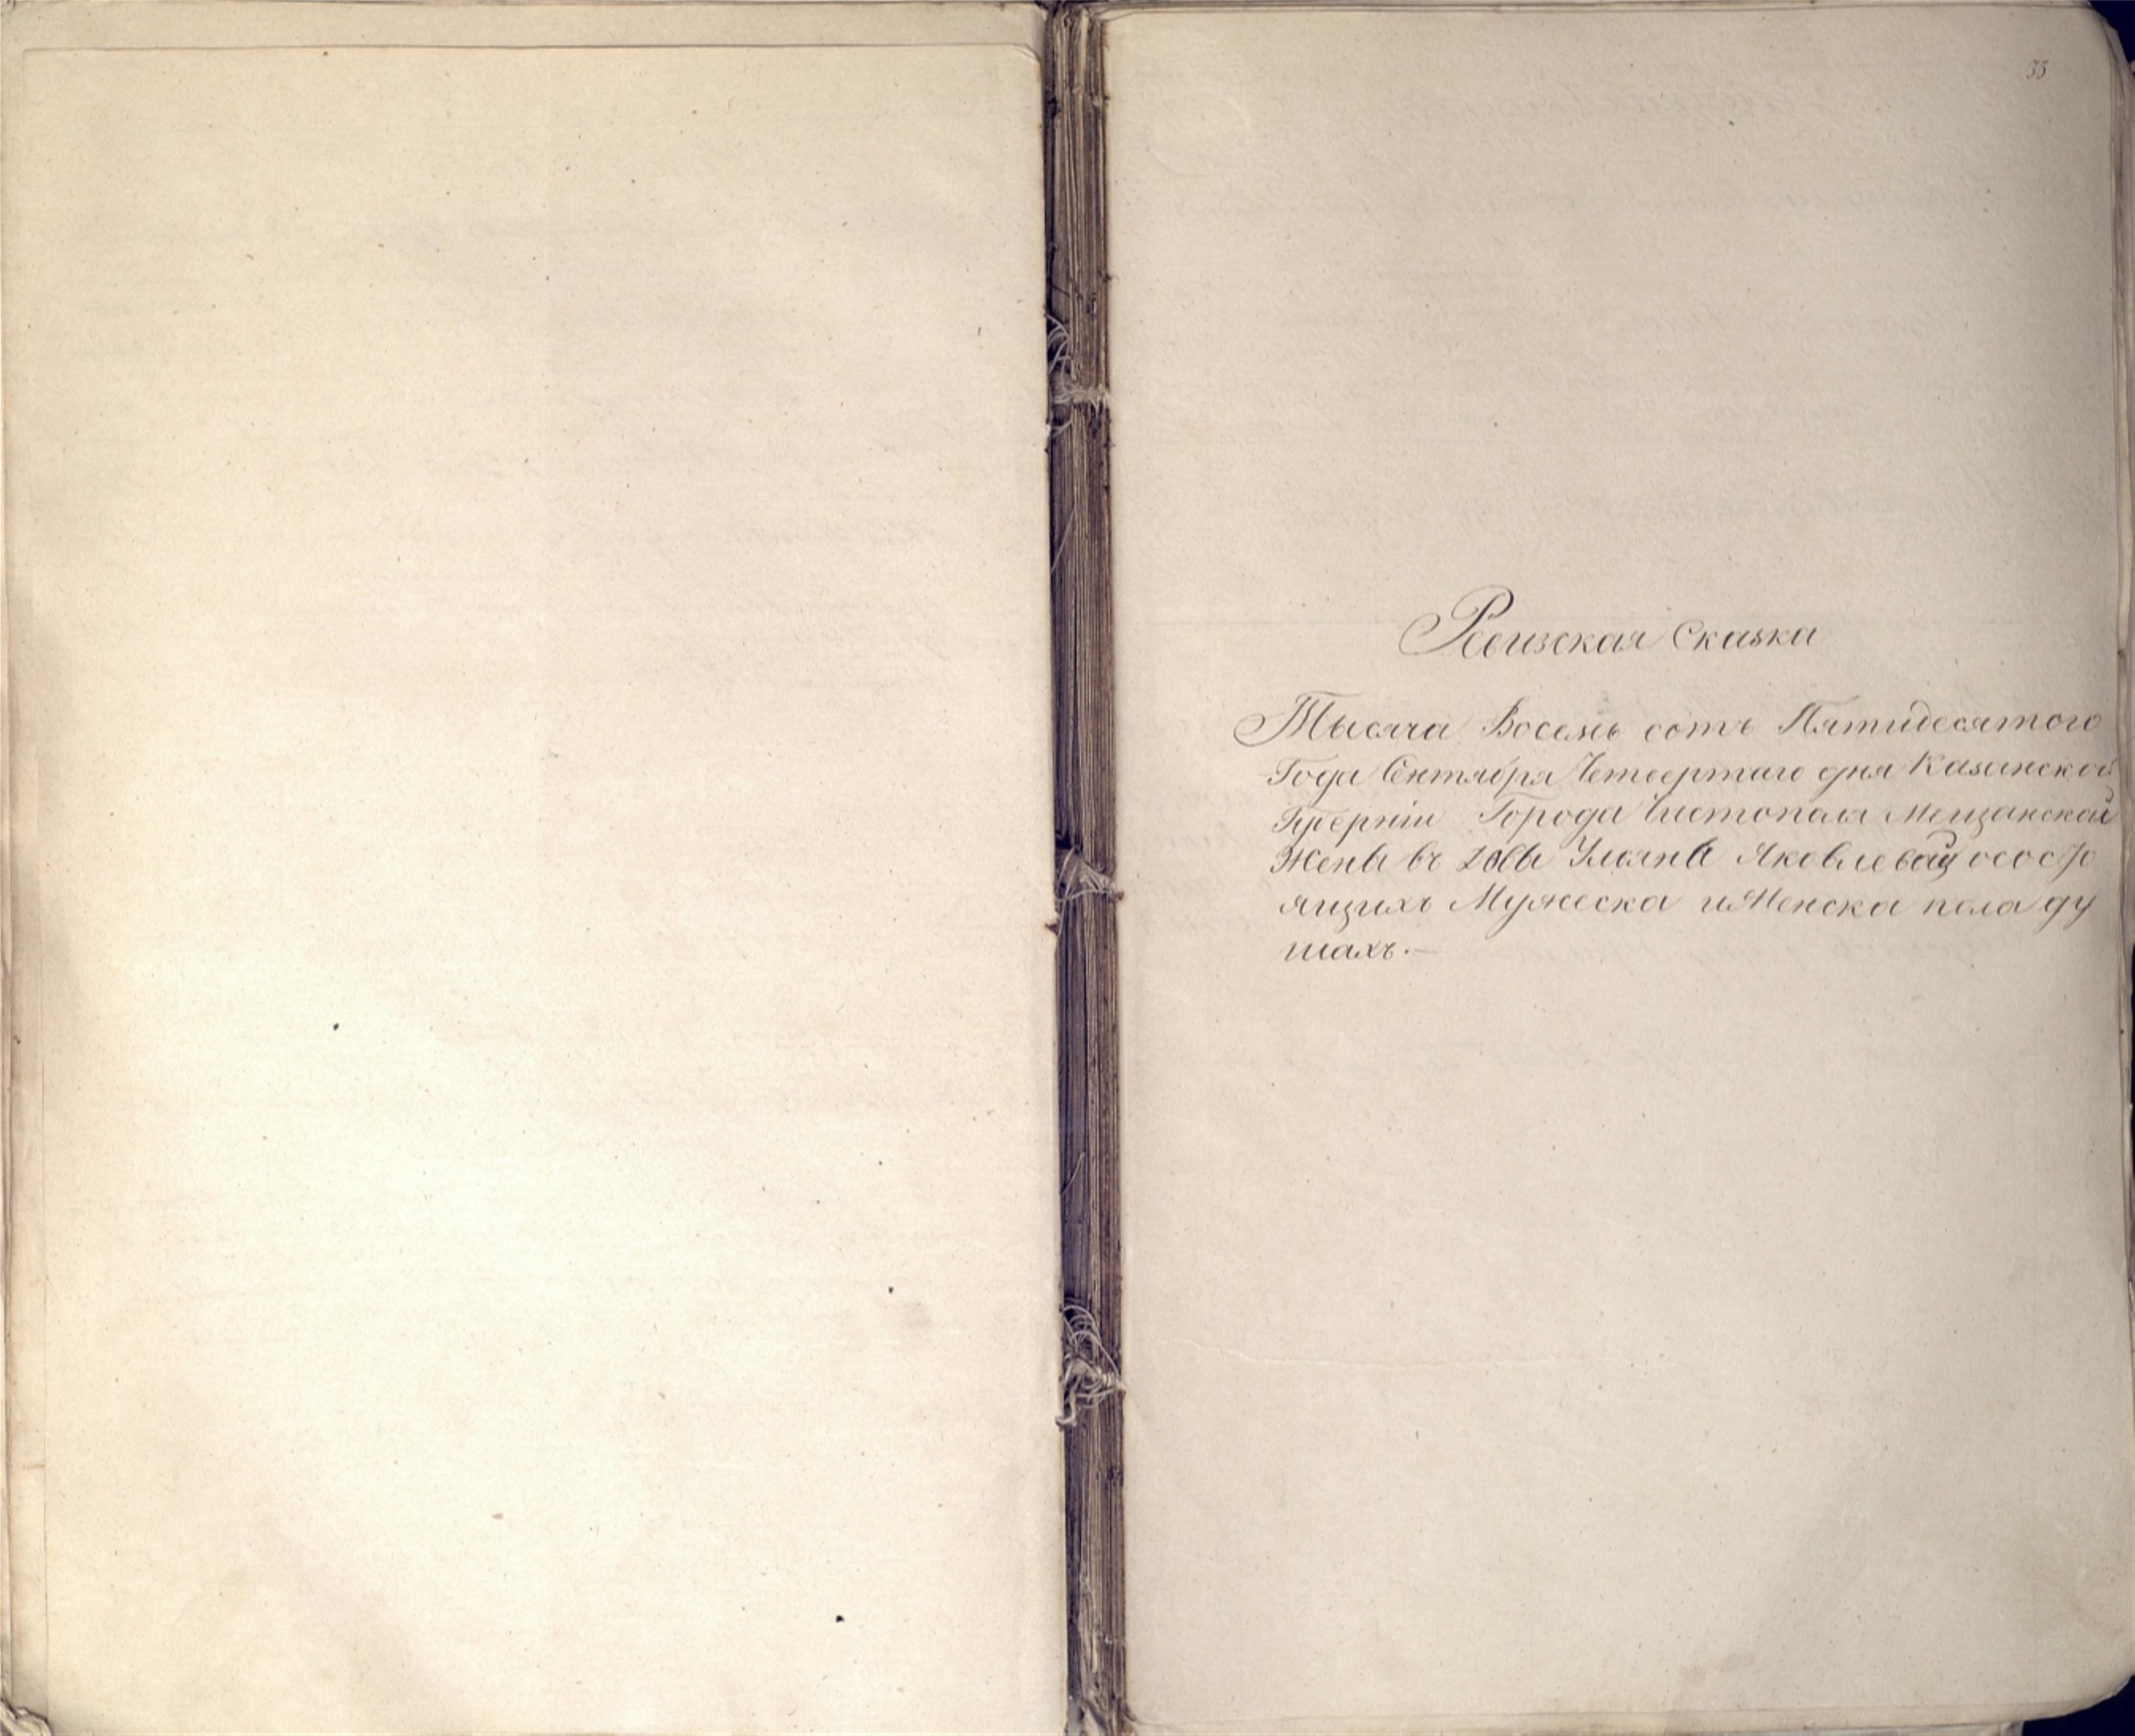 55
Ревизская Сказка
Тысяча Восемь сотъ Пятидесятого
Года Сентября Четвертаго дня Казанской
Губерніи Города Чистополя Мещанской
Жены въ довы Ульяны Яковлевой осостο
ящихъ Мужеска иженска пола ду
шахъ.—